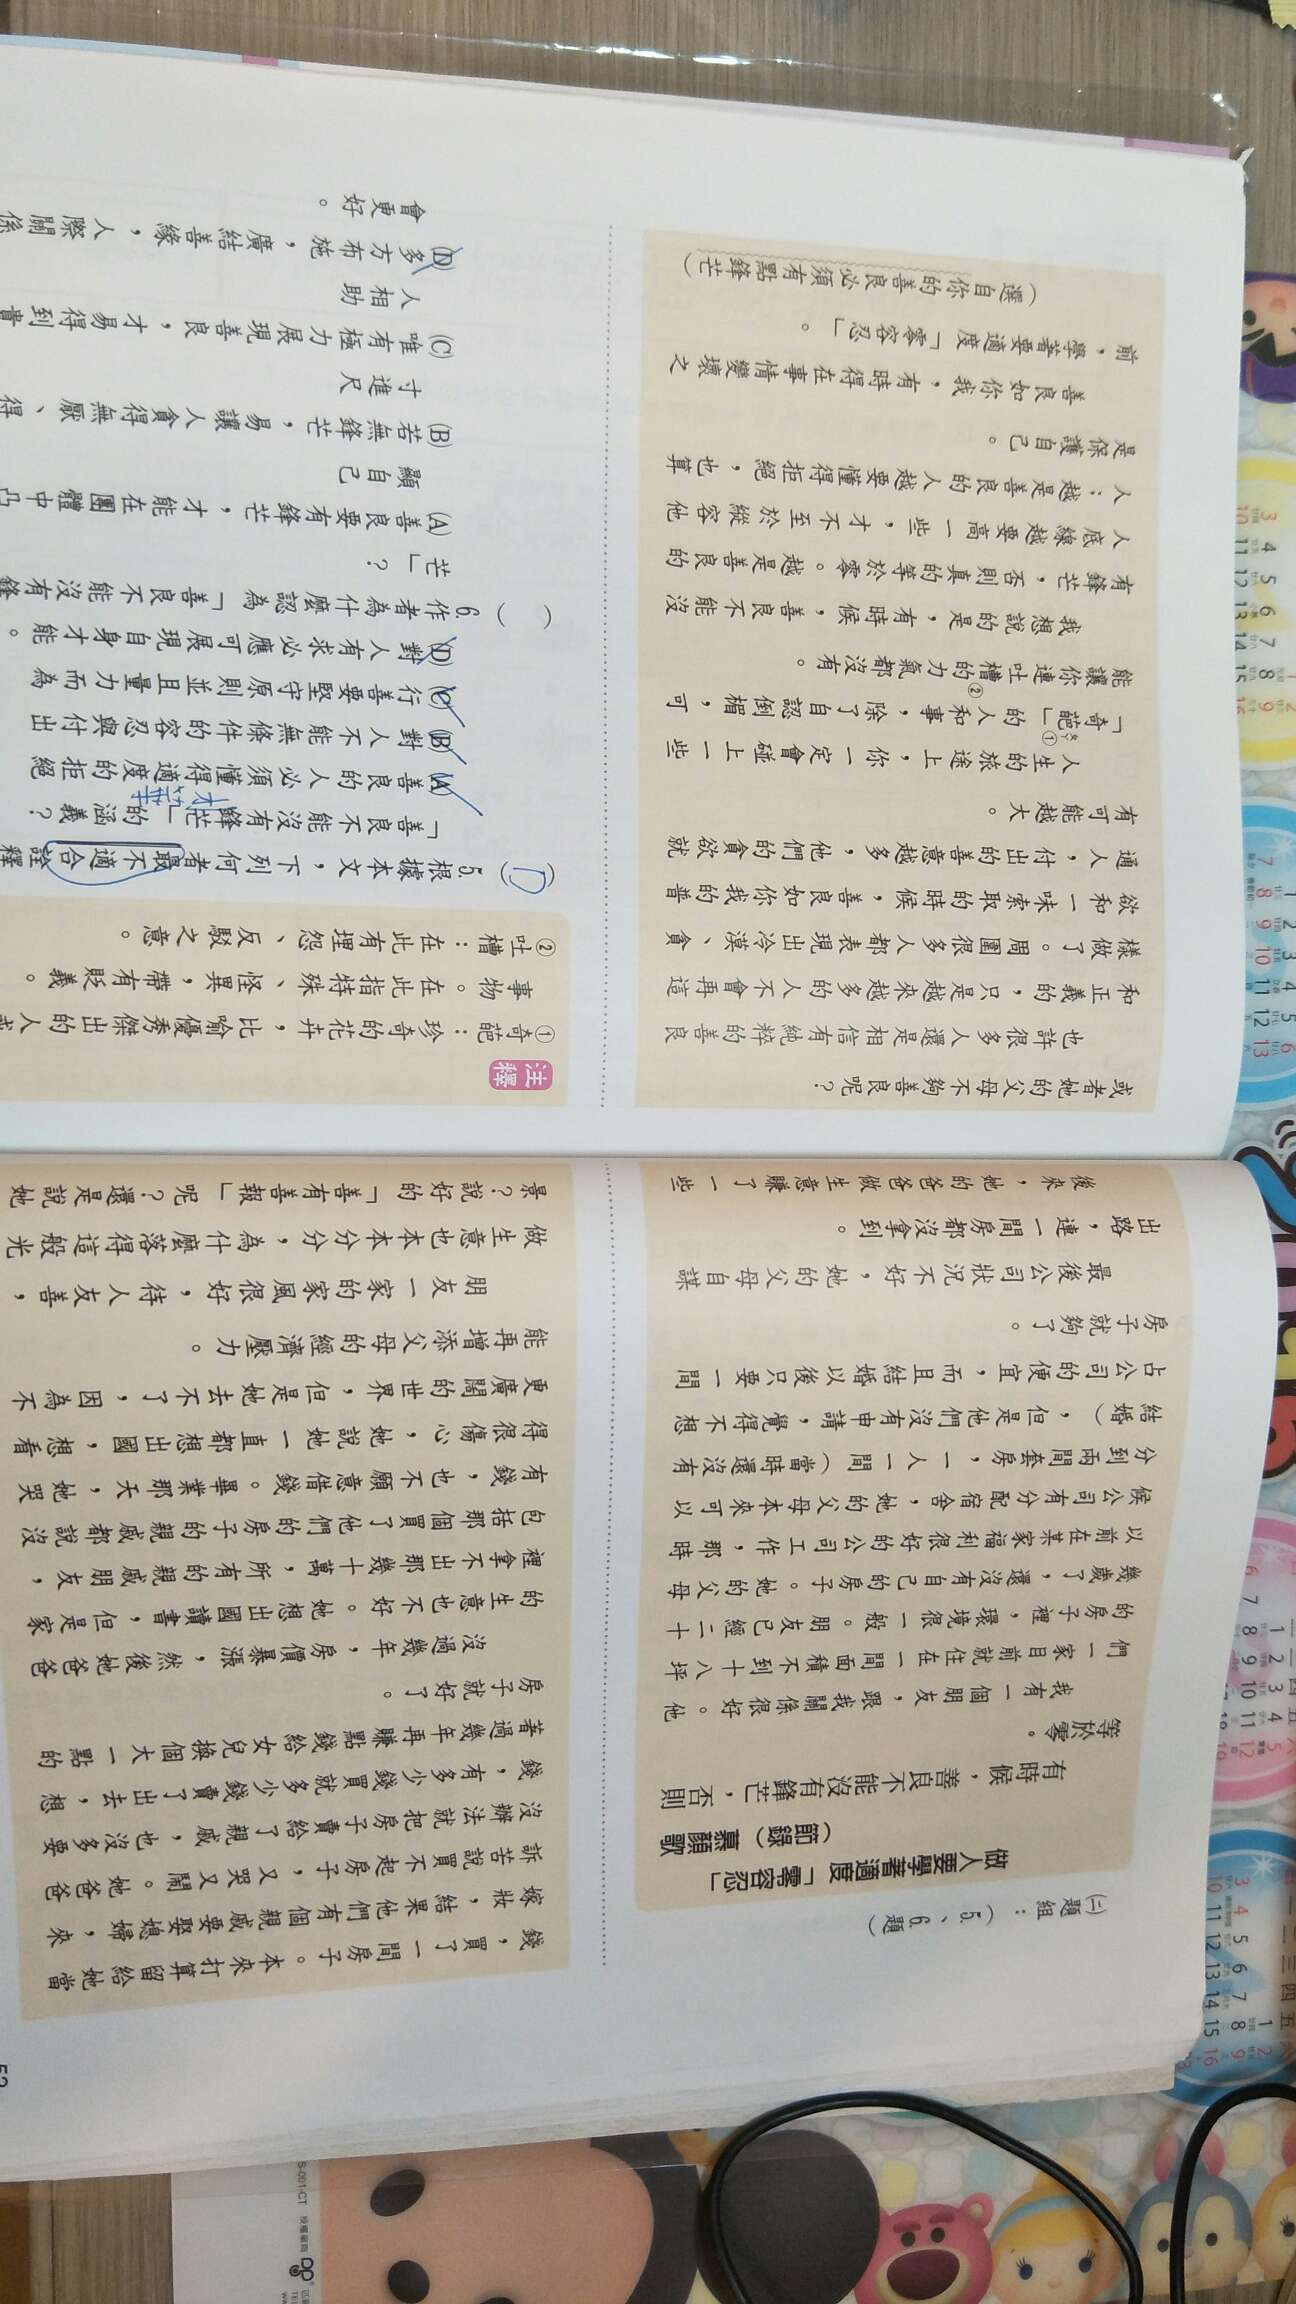 ㈡題組：（5.、6.題）
做人要學著適度「零容忍」
（節錄）慕顏歌
有時候，善良不能沒有鋒芒，否則
等於零。
我有一個朋友，跟我關係很好。他
們一家目前就住在一間面積不到十八坪
的房子裡，環境很一般。朋友已經二十
幾歲了，還沒有自己的房子。她的父母
以前在某家福利很好的公司工作，那時
候公司有分配宿舍，她的父母本來可以
分到兩間套房，一人一間（當時還沒有
結婚），但是他們沒有申請，覺得不想
占公司的便宜，而且結婚以後只要一間
房子就夠了。
最後公司狀況不好，她的父母自謀
出路，連一間房都沒拿到。
後來，她的爸爸做生意賺了一些
錢，買了一間房子。本來打算留給她當
嫁妝，結果他們有個親戚要娶媳婦，來
訴苦說買不起房子，又哭又鬧。她爸爸
沒辦法就把房子賣給了親戚，也沒多要
錢，有多少錢買就多少錢賣了出去，想
著過幾年再賺點錢給女兒換個大一點的
房子就好了。
沒過幾年，房價暴漲，然後她爸爸
的生意也不好。她想出國讀書，但是家
裡拿不出那幾十萬，所有的親戚朋友，
包括那個買了他們的房子的親戚都說沒
有錢，也不願意借錢。畢業那天，她哭
得很傷心，她說她一直都想出國，想看
更廣闊的世界，但是她去不了，因為不
能再增添父母的經濟壓力。
朋友一家的家風很好，待人友善，
做生意也本本分分，為什麼落得這般光
景？說好的「善有善報」呢？還是說她
或者她的父母不夠善良呢？
也許很多人還是相信有純粹的善良
和正義的，只是越來越多的人不會再這
樣做了。周圍很多人都表現出冷漠、貪
欲和一味索取的時候，善良如你我的普
通人，付出的善意越多，他們的貪欲就
有可能越大。
人生的旅途上，你一定會碰上一些
「奇葩①」的人和事，除了自認倒楣，可
能讓你連吐槽②的力氣都沒有。
我想說的是，有時候，善良不能沒
有鋒芒，否則真的等於零。越是善良的
人底線越要高一些，才不至於縱容他
人；越是善良的人越要懂得拒絕，也算
是保護自己。
善良如你我，有時得在事情變壞之
前，學著要適度「零容忍」。
（選自你的善良必須有點鋒芒）
注釋
①奇葩：珍奇的花卉，比喻優秀傑出的人或
事物。在此指特殊、怪異，帶有貶義。
②吐槽：在此有埋怨、反駁之意。
（D）5.根據本文，下列何者最不適合詮釋
「善良不能沒有鋒芒」的涵義？
(A)善良的人必須懂得適度的拒絕
(B)對人不能無條件的容忍與付出
(C)行善要堅守原則並且量力而為
(D)對人有求必應可展現自身才能。
（ ）6.作者為什麼認為「善良不能沒有鋒
芒」？
(A)善良要有鋒芒，才能在團體中凸
顯自己
(B)若無鋒芒，易讓人貪得無厭、得
寸進尺
(C)唯有極力展現善良，才易得到貴
人相助
(D)多方布施，廣結善緣，人際關係
會更好。